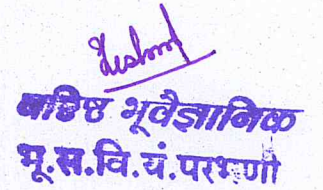 वरिष्ठ भूवैज्ञानिक
भू.स.वि.यं.परभणी